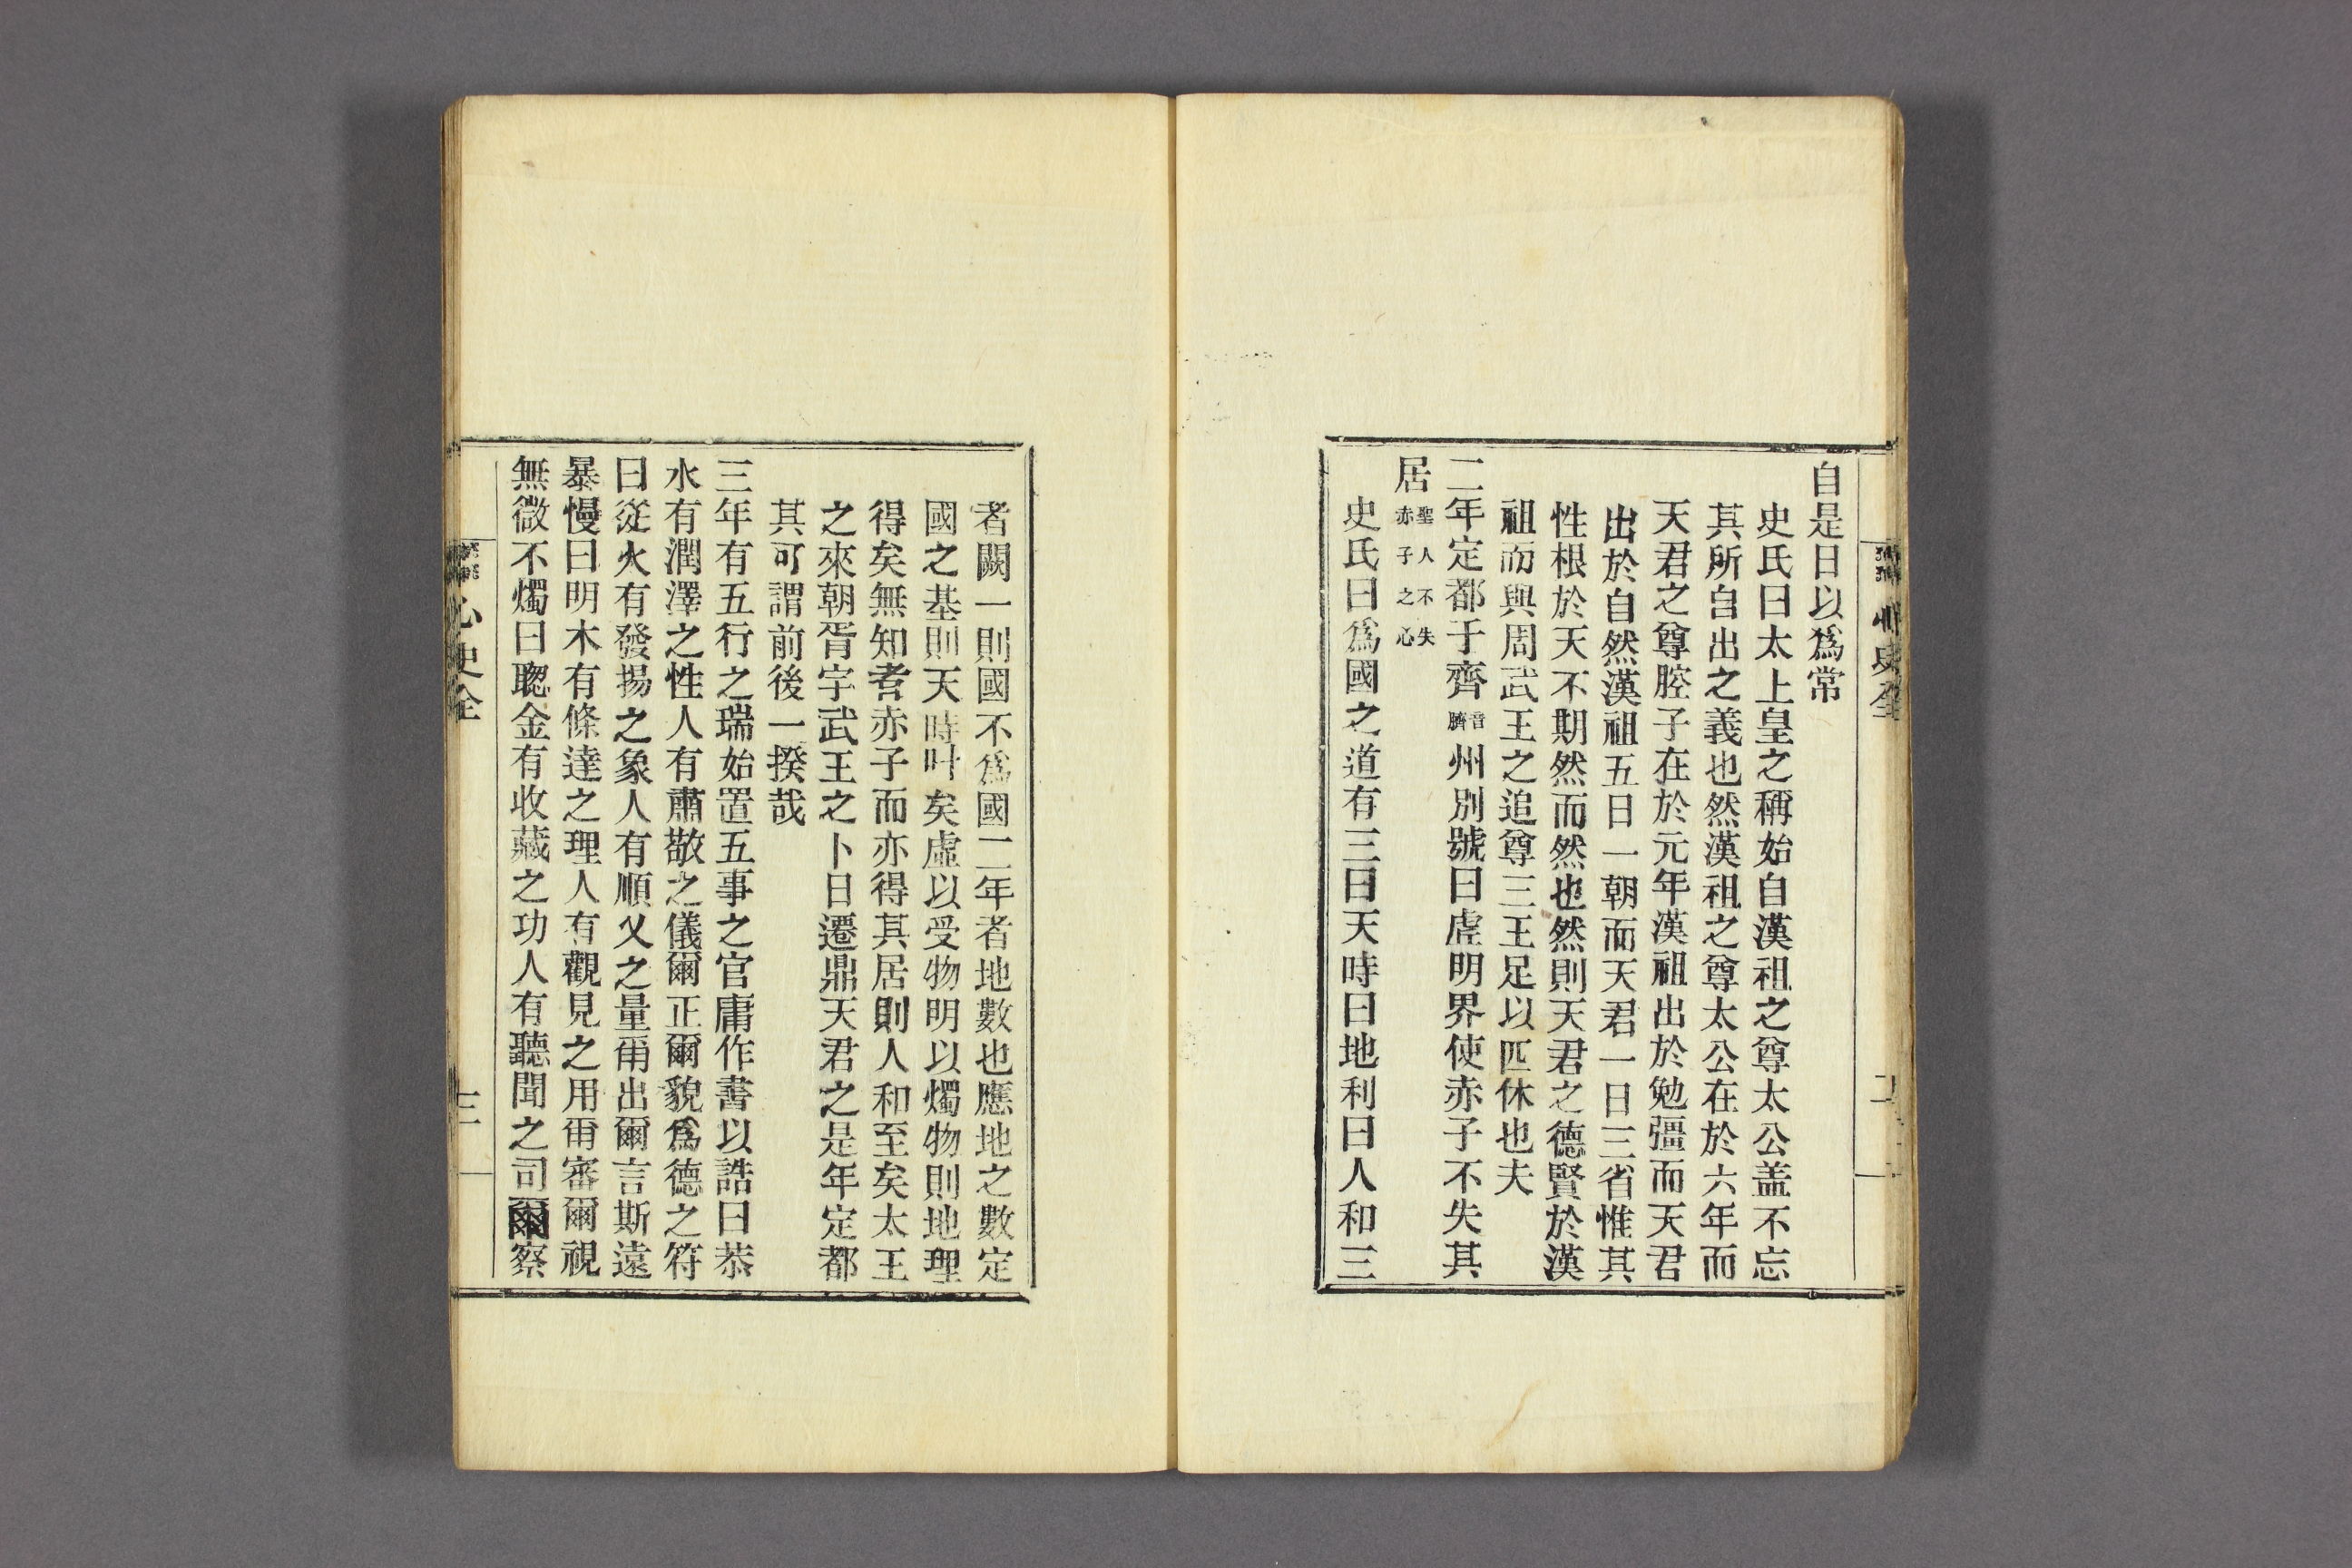 自是日以爲常
史氏曰太上皇之稱始自漢祖之尊太公盖不忘
其所自出之義也然漢祖之尊太公在於六年而
天君之尊腔子在於元年漢祖出於勉彊而天君
出於自然漢祖五日一朝而天君一日三省惟其
性根於天不期然而然也然則天君之德賢於漢
祖而與周武王之追尊三王足以匹休也夫
二年定都于齊音臍州別號曰虛明界使赤子不失其
居聖人不失赤子之心
史氏曰爲國之道有三曰天時曰地利曰人和三
者闕一則國不爲國二年者地數也應地之數定
國之基則天時叶矣虛以受物明以燭物則地理
得矣無知者赤子而亦得其居則人和至矣太王
之來朝胥宇武王之卜日遷鼎天君之是年定都
其可謂前後一揆哉
三年有五行之瑞始置五事之官庸作書以誥曰恭
水有潤澤之性人有肅敬之儀爾正爾貌爲德之符
曰從火有發揚之象人有順乂之量爾出爾言斯遠
暴慢曰明木有條達之理人有觀見之用爾審爾視
無微不燭曰聰金有收藏之功人有聽聞之司爾察
心史全
三